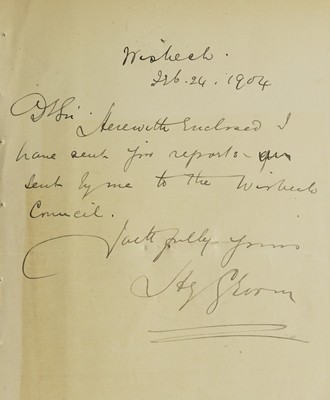 Wisbech.
Feb. 24. 1904
D Sir Herewith Enclosed I
have sent you reports
sent by me to the Wisbech
Council.
Faithfully yours